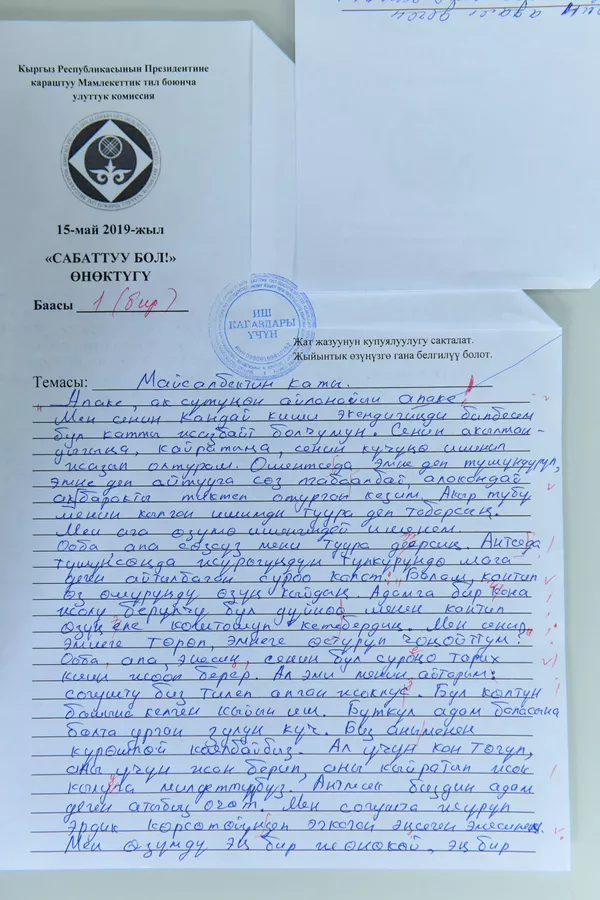 Кыргыз Республикасынын Президентине
караштуу Мамлекеттик тил боюнча
улуттук комиссия
15-май 2019-жыл
«САБАТТУУ БОЛ!»
ӨНӨКТҮГҮ
Баасы 1 (бир)
ИШ
КАГАЗДАРЫ
ҮЧҮН
Жат жазуунун купуялуулугу сакталат.
Жыйынтык өзүңүзгө гана белгилүү болот.
Темасы: Майсалбектин каты.
"Апаке, ак сүтүңөн айланайын апаке!
Мен сенин кандай киши экендигиңди билбесем
бул катты жазбайт болчумун. Сенин акылман-
дыгыңа, кайратыңа, сенин күчүңө ишенип
жазып олтурам. Ошентседа, эмне деп түшүндүрүп,
эмне деп айтууга сөз таба албай, алакандай
ак баракты тиктеп отурган кезим. Акыр түбү
менин кылган ишимди туура деп табарсың.
Мен ага өзүмө ишенгендей ишенем.
Ооба, апа сөзсүз мени туура дээрсиң. Антседа
түшүнсөңдө жүрөгүңдүн түпкүрүндө мага
деген айтылбаган суроо калат: "Балам, кантип
өз өмүрүңдү өзүң кыйдың. Адамга бир гана
жолу берүлчү бул дүйнөө менен кантип
өзүң эле коштошуп кете бердиң. Мен сени
эмнеге төрөп, эмнеге өстүрүп чоңойттум?"
Ооба, апа, энесиң, сенин бул суроңо тарых
кийин жооп берер. Ал эми менин айтарым:
согушту биз тилеп алган жокпуз. Бул көптүн
башына келген кыйын иш. Бүткүл адам баласына
балта урган зулум күч. Биз аны менен
күрөшпөй коё албайбыз. Ал үчүн кан төгүп,
аны үчүн жан берип, аны кыйратып жок
кылууга милдеттүүбүз. Антпесек биздин адам
деген атыбыз өчөт. Мен согушта жүрүп
эрдик көрсөтөйүн деп эчкачан эңсеген эмесмин.
Мен өзүмдү эң бир жөнөкөй, эң бир